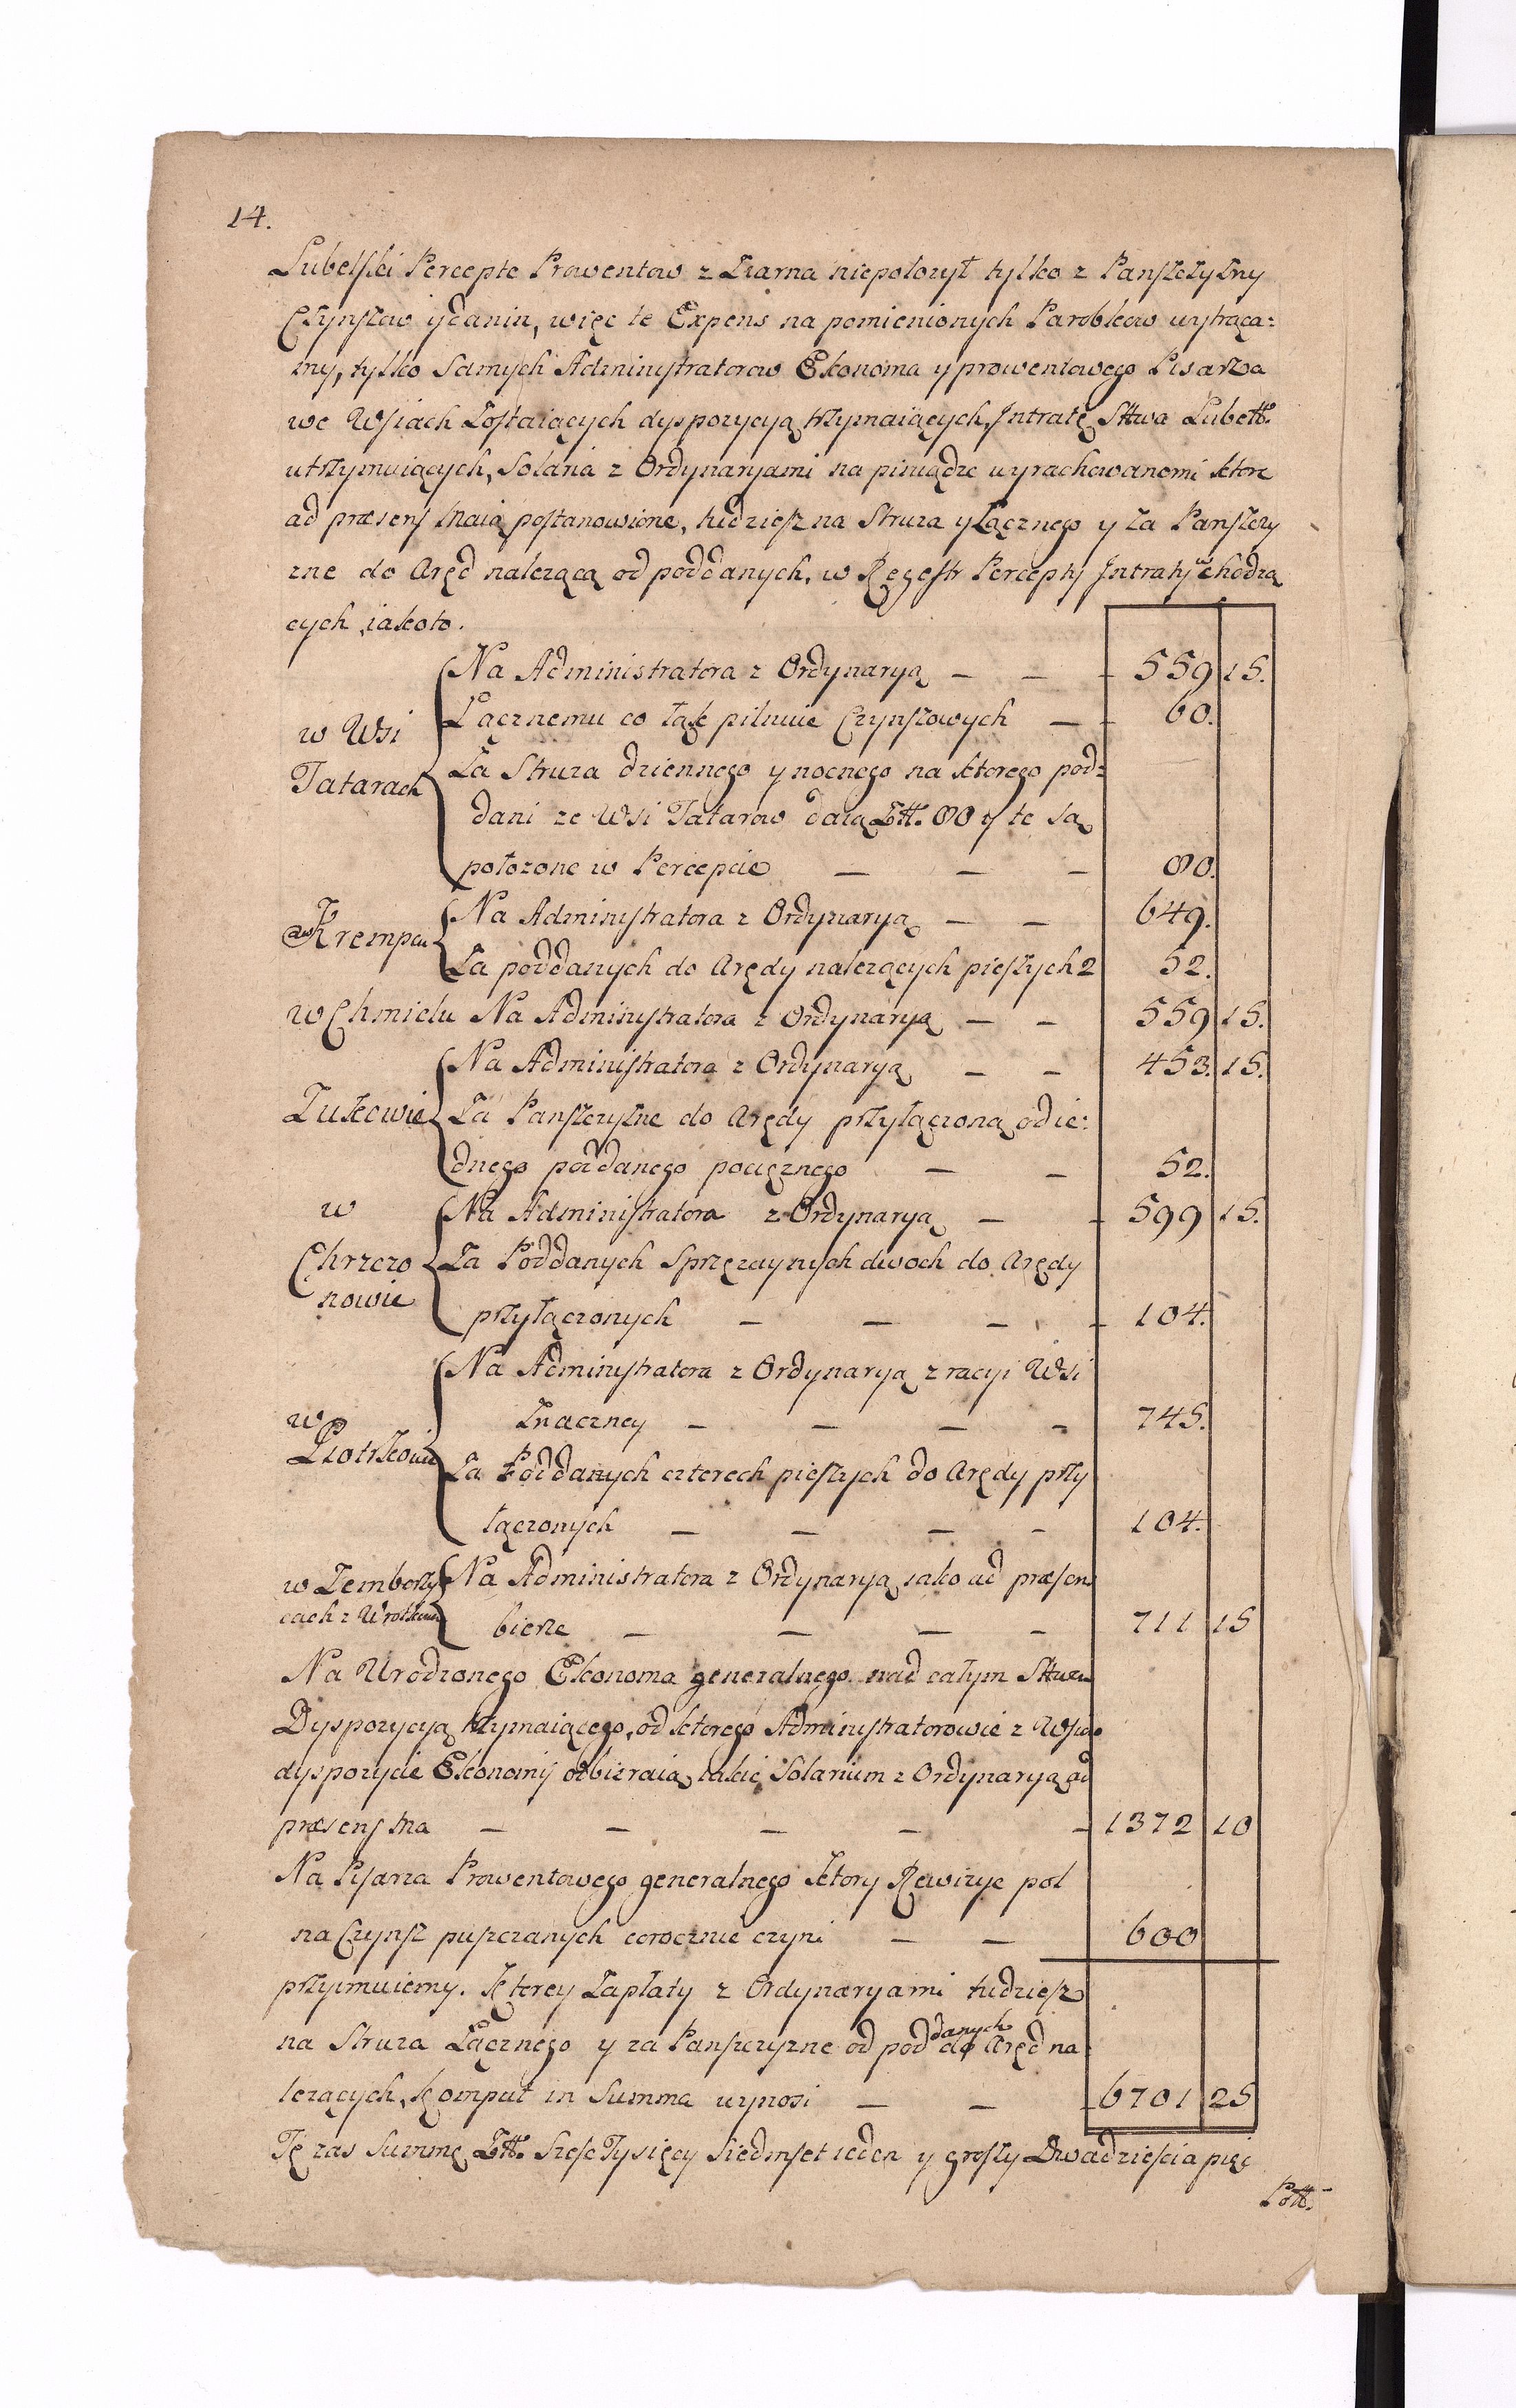 14.
Lubelski Percepte Prowentow z Ziarna niepołozył tylko z Panszczyzny
Czynszow y danin, więc te Expens na pomienionych Parobkow wytrąca=
my, tylko Samych Administratorow Ekonoma y prowentowego Pisarza
we Wsiach Zostaiących dyspozycyą trzymaiących, Jntratę Sttwa Lubett.
utrzymuiących, Solaria z Ordynaryami na piniądze wyrachowanemi ktore
ad præsens maią postanowione, tudziesz na Stroza y Łącznego y za Panszczy
zne do Aręd nalezącą od poddanych, w Regestr Percepty Jntraty wchodzą
cych, iakoto.
Na Administratora z Ordynaryą — — 559 15.
w Wsi Tatarach
Łącznemu co łąk pilnuie Czynszowych — 60.
Za Stroza dziennego y nocnego na ktorego pod=
dani ze Wsi Tatarow daią Ztt. 80 y te są
położone w Percepcie — — — 80.
w Krempcu
Na Administratora z Ordynaryą — — 649.
Za poddanych do Arędy nalezących pieszych 2 52.
w Chmielu Na Administratora z Ordynaryą — — 559 15.
Na Administratora z Ordynaryą — — 453. 15.
Żukowie
Za Panszczyzne do Arędy przyłączoną od ie=
dnego poddanego pociężnego — — 52.
w Chrzczonowie
Na Administratora z Ordynaryą — — 599 15.
Za Poddanych Sprzężaynych dwoch do Arędy
przyłączonych — — — — 104.
w Piotrkowie
Na Administratora z Ordynaryą z racyi Wsi
Znaczney — — — — 745.
Za Poddanych czterech pieszych do Arędy przy
łączonych — — — — 104.
w Zemborzycach z Wrotkowem
Na Administratora z Ordynaryą, iako ad præsens
bierze — — — — 711 15
Na Urodzonego Ekonoma generalnego nad całym Sttwem
Dyspozycyą trzymaiącego, od ktorego Administratorowie z Wsiow
dyspozycie Ekonomij odbieraią, takie Solarium z Ordynaryą ad
præsens ma — — — — — 1372 10
Na Pisarza Prowentowego generalnego ktory Rewizye pol
na Czynsz puszczanych corocznie czyni — — 600
przyimuiemy. Ktorey Zapłaty z Ordynaryami tudziesz
na Stroza Łącznego y za Panszczyzne od poddanych do Aręd na
lezących, komput in Summa wynosi — — 6701 25
Tę zas Summę Ztt. Szesc Tysięcy Siedmset ieden y groszy Dwadziescia pięć
Pott.